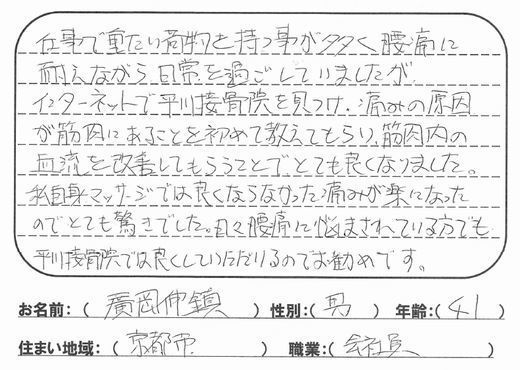 仕事で重たい荷物を持つ事が多く、腰痛に
耐えながら日常を過ごしていましたが、
インターネットで平川接骨院を見つけ、痛みの原因
が筋肉にあることを初めて教えてもらい、筋肉内の
血流を改善してもらうことでとても良くなりました。
私自身マッサージでは良くならなかった痛みが楽になった
のでとても驚きでした。日々腰痛に悩まされている方でも
平川接骨院では良くしていただけるのでお勧めです。
お名前:(廣岡伸鎮) 性別:(男) 年齢:(41)
住まい地域:(京都市) 職業:(会社員)